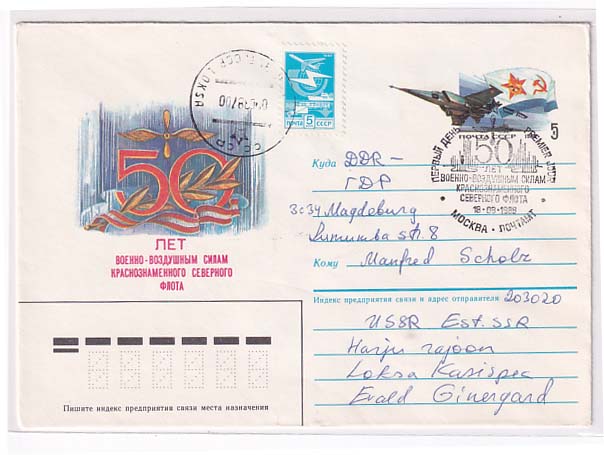 50
ЛЕТ
ВОЕННО-ВОЗДУШНЫМ СИЛАМ
КРАСНОЗНАМЕННОГО СЕВЕРНОГО
ФЛОТА
СССР LOKSA
ПОЧТА 5 СССР
ПОЧТА СССР
5
ПЕРВЫЙ ДЕНЬ PREMIER JOUR
50
ЛЕТ
ВОЕННО-ВОЗДУШНЫМ СИЛАМ
КРАСНОЗНАМЕННОГО
СЕВЕРНОГО ФЛОТА
18-09-1986
МОСКВА • ПОЧТАМТ
Куда DDR -
ГДР
3034 Magdeburg
str. 8
Кому Manfred Scholz
Индекс предприятия связи и адрес отправителя 203020
USSR Est. SSR
Harju rajoon
Loksa
Evald Ginergard
Пишите индекс предприятия связи места назначения